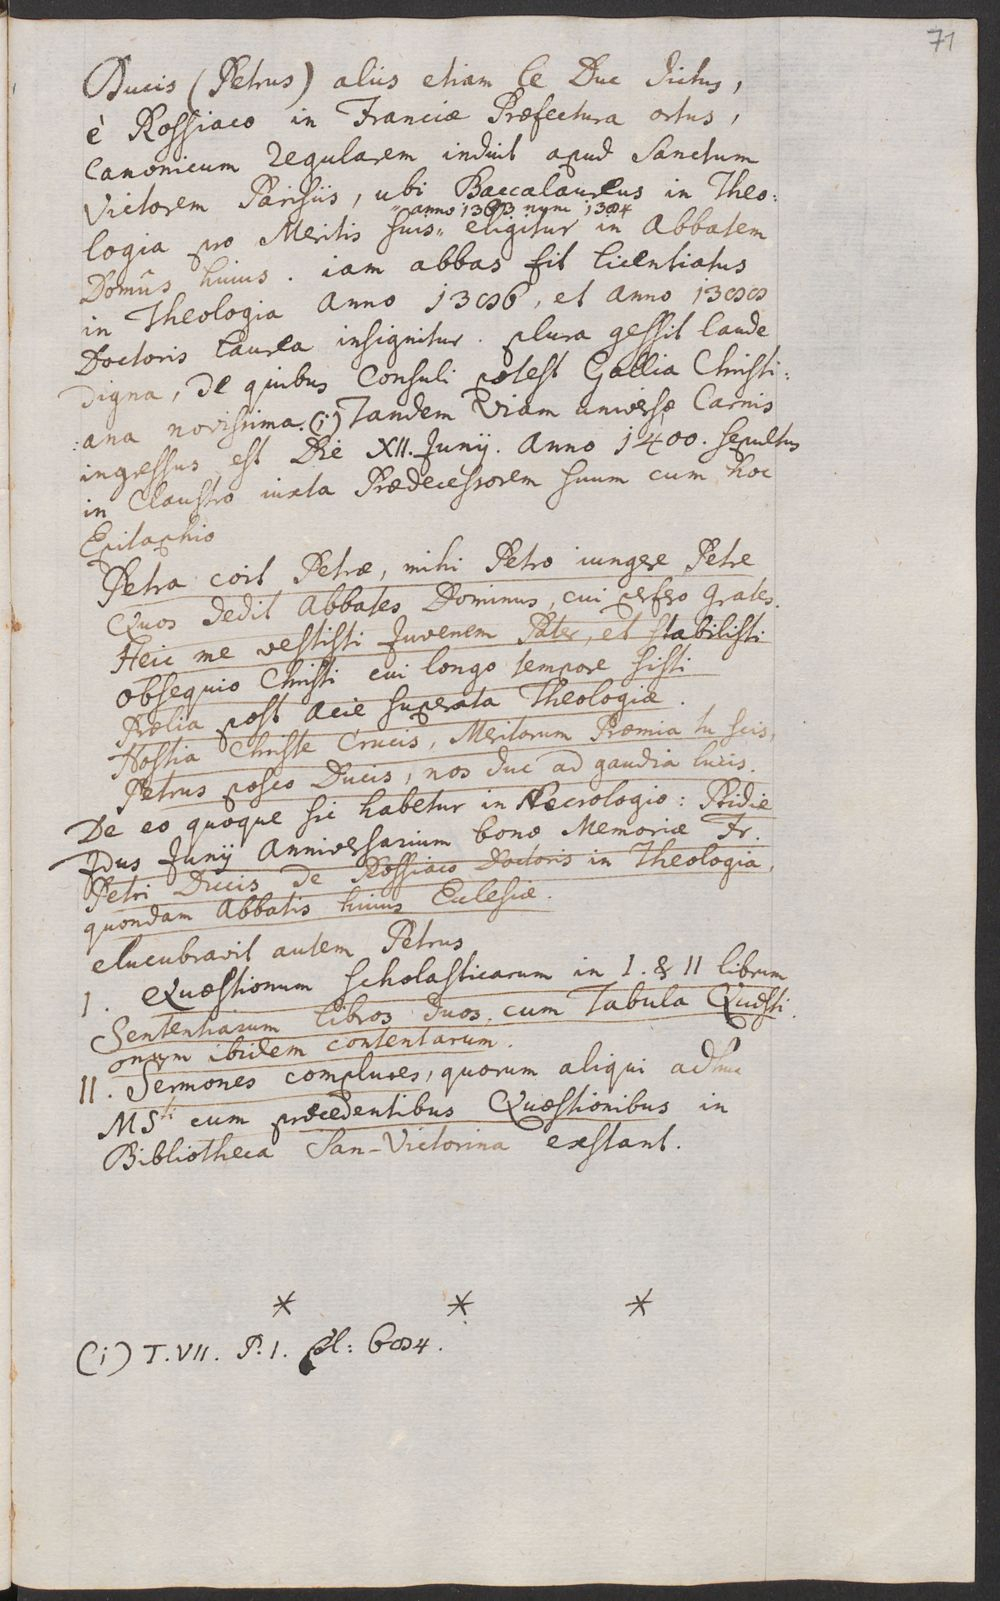 71
Ducis (Petrus) aliis etiam le Duc dictus,
è Rossiaco in Franciæ Præfectura ortus,
Canonicum regularem induit apud Sanctum
Victorem Parisiis, ubi Baccalaureus in Theo:
anno 1383 nunc 1384
logia pro Meritis suis eligitur in Abbatem
Domûs huius. iam abbas fit licentiatus
in Theologia Anno 1386, et Anno 1388
Doctoris laurea insignitur. plura gessit laude
digna, de quibus Consuli potest Gallia Christi:
:ana novissima. (i) Tandem Viam universæ Carnis
ingressus est Die XII. Junij. Anno 1400. sepultus
in Claustro iuxta Prædecessorem suum cum hoc
Epitaphio
Petra coit Petræ, mihi Petro iungere Petre
Quos dedit Abbates Dominus, cui persero grates.
Heic me vestisti Juvenem Pater, et stabilisti
obsequio Christi cui longo tempore sisti
Prælia post Acie superata Theologiæ.
Hostia Christe Crucis, Meritorum Præmia tu scis,
Petrus posco Ducis, nos duc ad gaudia lucis.
De eo quoque sic habetur in Necrologio: Pridie
Jdus Junij Anniversarium bonæ Memoriæ Fr.
Petri Ducis de Rossiaco Doctoris in Theologia,
quondam Abbatis huius Eclesiæ.
elucubravit autem Petrus
I. Quæstionum scholasticarum in I. & II librum
Sententiarum libros duos, cum Tabula Quæsti
onum ibidem contentarum.
II. Sermones complures, quorum aliqui adhuc
MSti cum præcedentibus Quæstionibus in
Bibliotheca San-Victorina exstant.
* * *
(i) T. VII. P. I. col: 684.